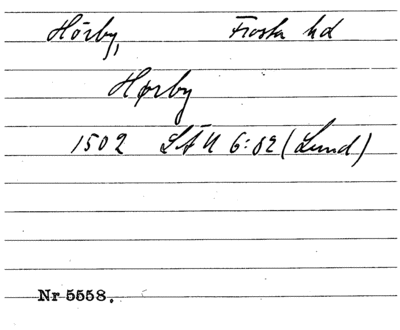 Hörby, Frosta hd
Hørby
1502 LÄU 6:82 (Lund)
Nr 5558.